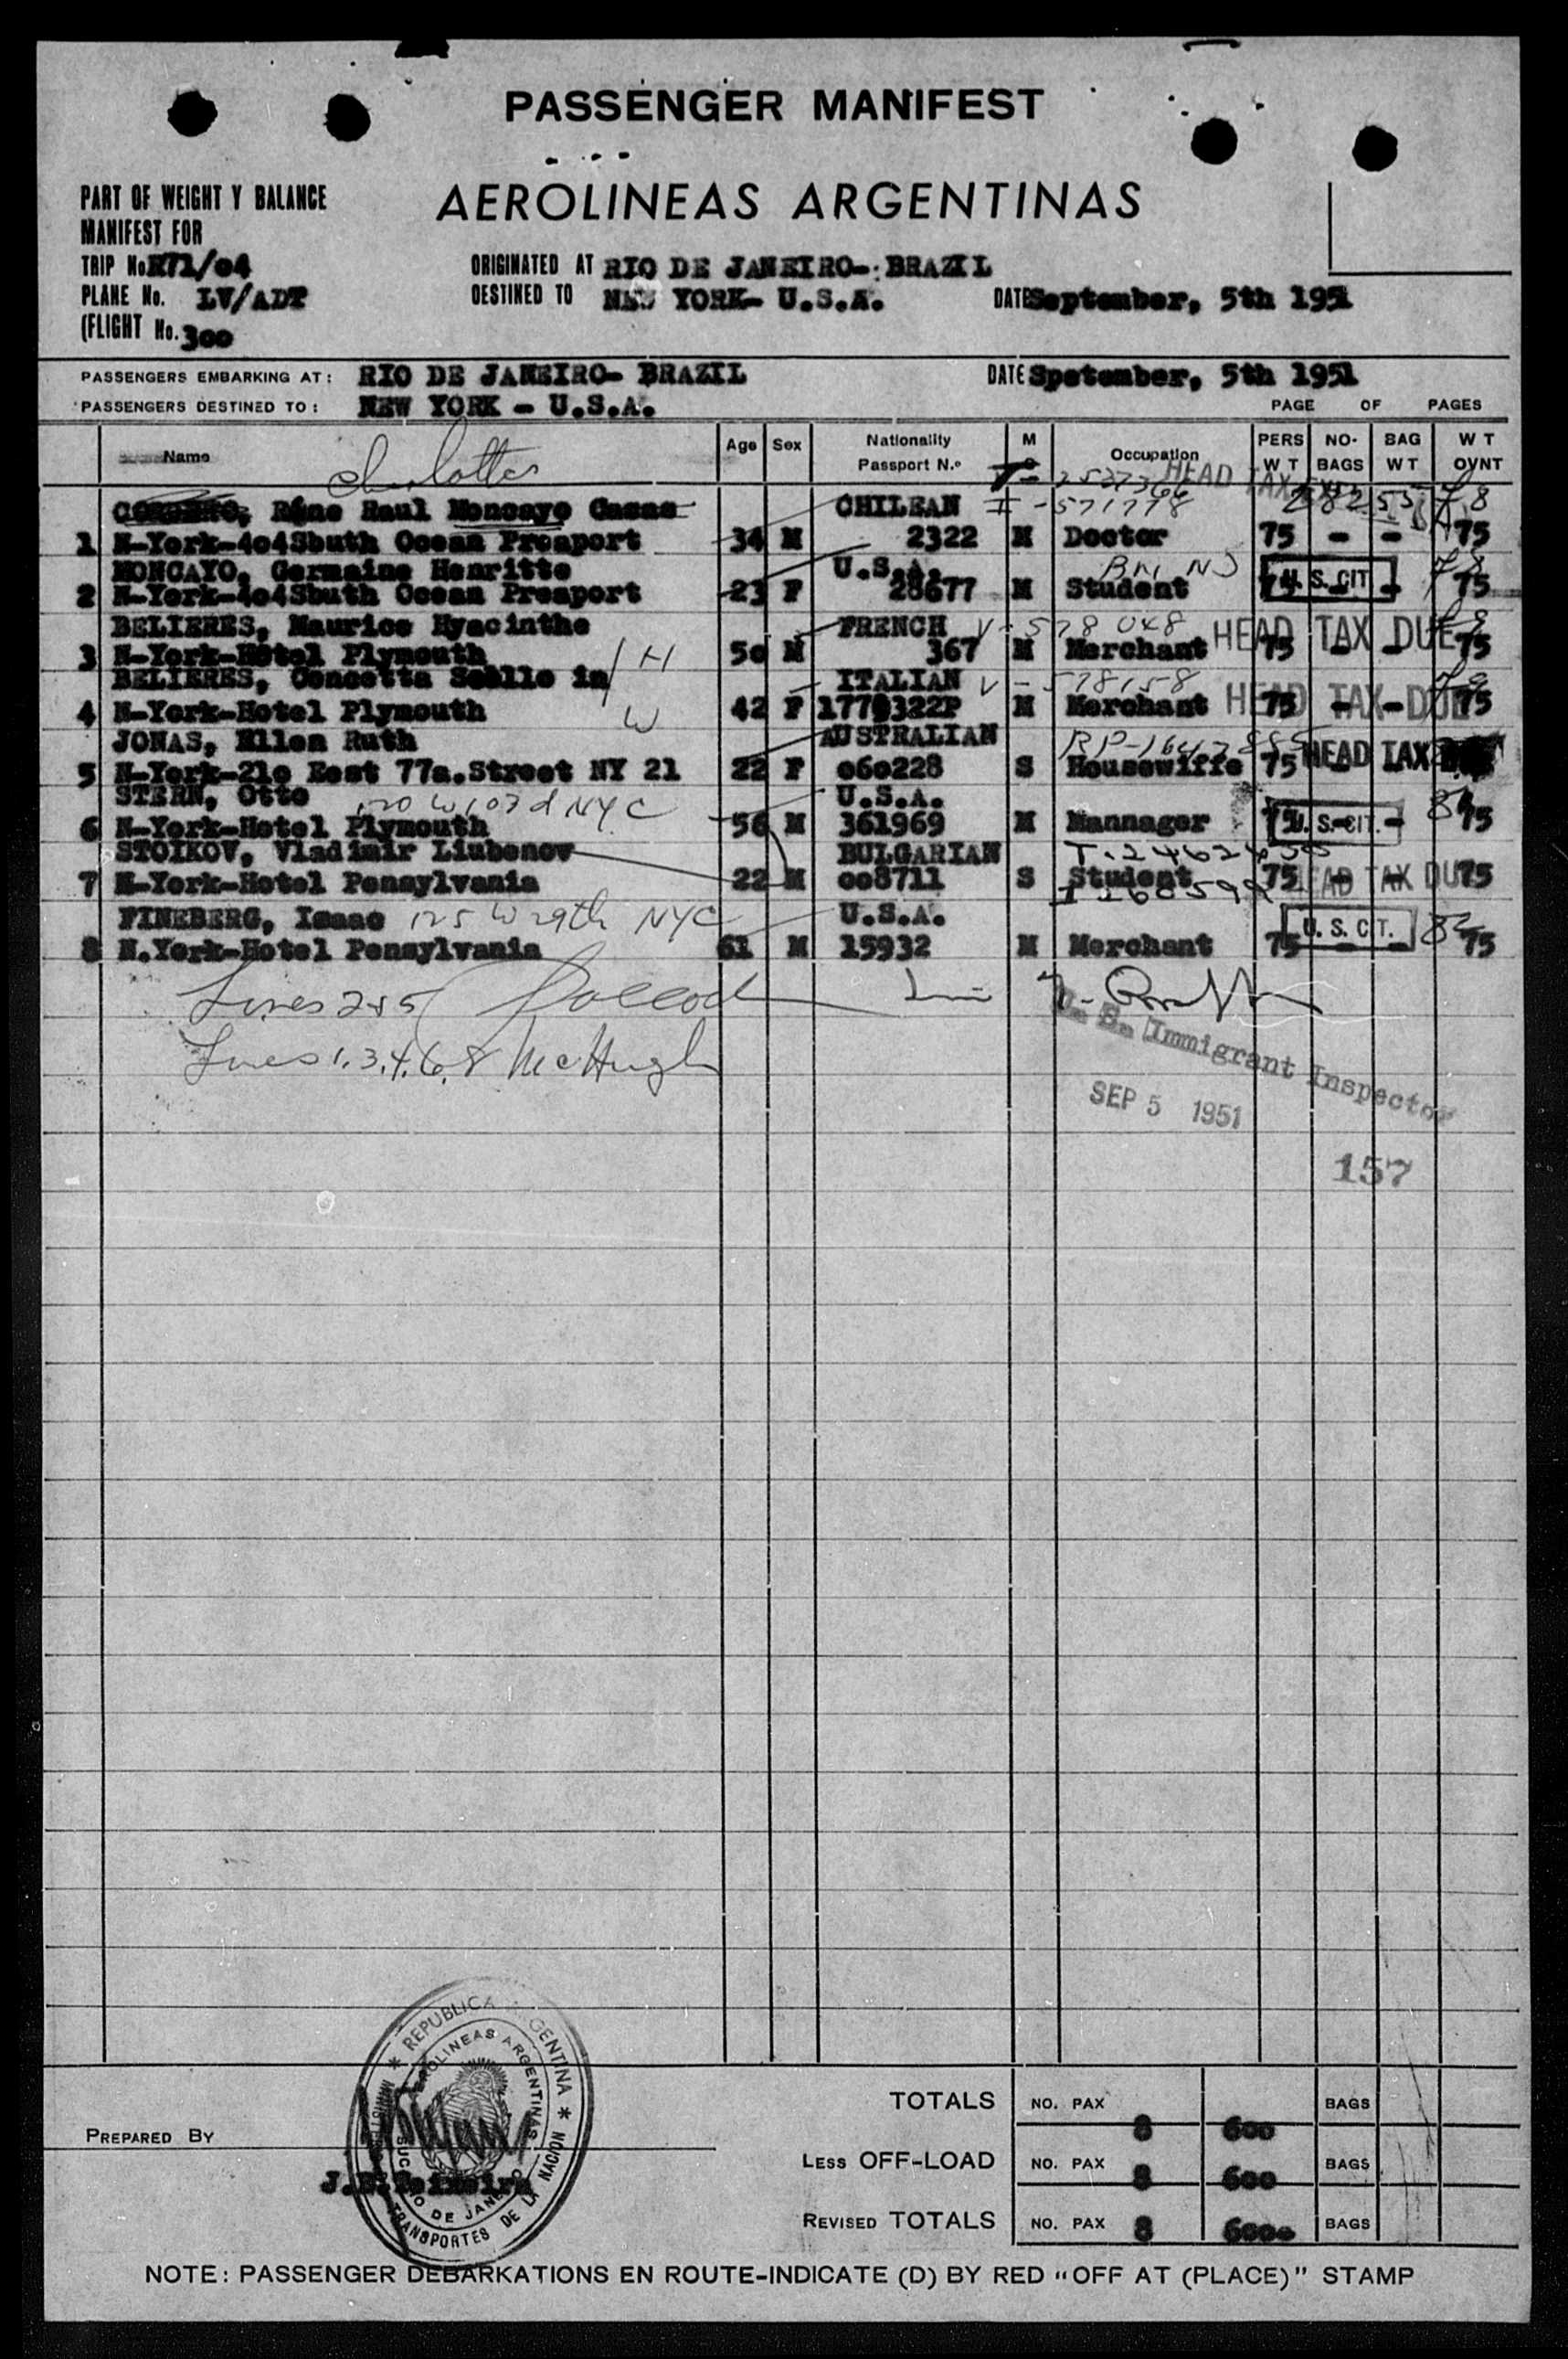 PASSENGER MANIFEST
AEROLINEAS ARGENTINAS
PART OF WEIGHT Y BALANCE
MANIFEST FOR
TRIP No. 71/04
PLANE No. LV/ADT
(FLIGHT No. 300
ORIGINATED AT RIO DE JANEIRO-BRAZIL
DESTINED TO NEW YORK- U.S.A.
DATE September, 5th 1951
PASSENGERS EMBARKING AT: RIO DE JANEIRO- BRAZIL DATE Spetember, 5th 1951
PASSENGERS DESTINED TO: NEW YORK - U.S.A. PAGE OF PAGES
Name Age Sex Nationality Passport N.º M Occupation PERS WT NO- BAGS BAG WT WT OVNT
Charlotte
Réne Raul Moncayo Casas CHILEAN
1 N-York-404Sbuth Ocean Preaport 34 M 2322 M Doctor 75 - - 75
MONCAYO, Germaine Henritte U.S.A.
2 N-York-404Sbuth Ocean Preaport 23 F 28677 M Student U. S. CIT - 75
BELIERES, Maurice Hyacinthe FRENCH V-578048 HEAD TAX DUE
3 N-York-Hotel Plymouth H 50 M 367 M Merchant 75 - - 75
BELIERES, Concetta in ITALIAN V-578158 HEAD TAX DUE
4 N-York-Hotel Plymouth W 42 F 1770322P M Merchant 75 - - 75
JONAS, Ellen Ruth AUSTRALIAN HEAD TAX
5 N-York-210 East 77a.Street NY 21 22 F 060228 S Housewiffe 75
STERN, Otto 120 W 103d NYC U.S.A.
6 N-York-Hotel Plymouth 56 M 361969 M Mannager 75 U. S. CIT. - 75
STOIKOV, Vladimir Liubenov BULGARIAN
7 N-York-Hotel Pensylvania 22 M 008711 S Student 75 HEAD TAX DUE 75
FINEBERG, Isaac 125 W 29th NYC U.S.A. U. S. CIT.
8 N.York-Hotel Pensylvania 61 M 15932 M Merchant 75 - - 75
Lines 2 & 5
Lines 1.3.4.6.8 McHugh
U. S. Immigrant Inspector
SEP 5 1951
157
REPUBLICA ARGENTINA
AEROLINEAS ARGENTINAS
TRANSPORTES DE LA NACION
RIO DE JANEIRO
PREPARED BY
TOTALS NO. PAX 8 600 BAGS
LESS OFF-LOAD NO. PAX 8 600 BAGS
REVISED TOTALS NO. PAX 8 600 BAGS
NOTE: PASSENGER DEBARKATIONS EN ROUTE-INDICATE (D) BY RED "OFF AT (PLACE)" STAMP